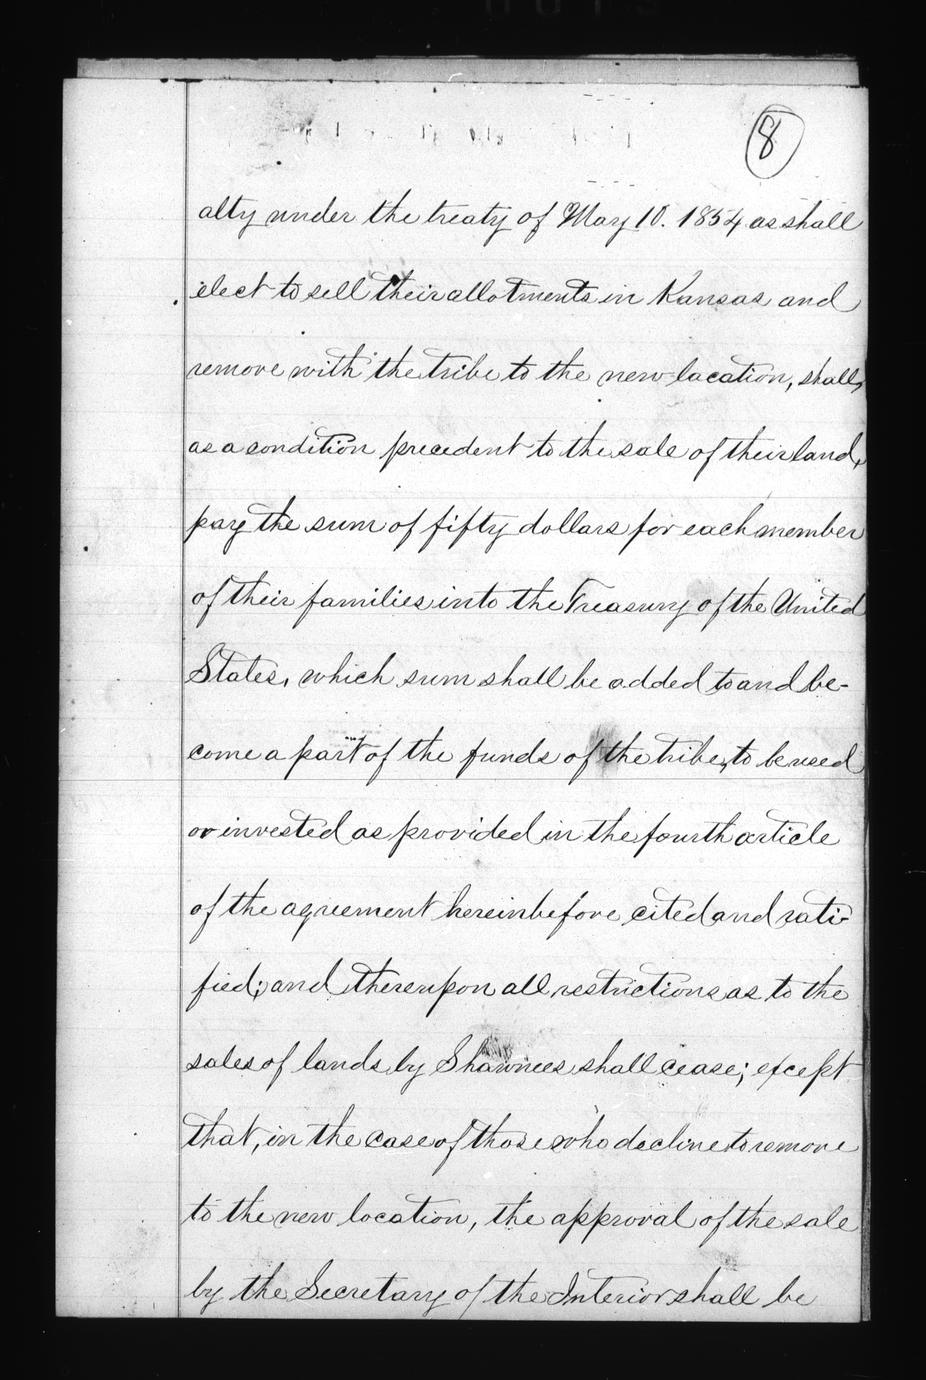 8
alty under the treaty of May 10. 1854 as shall
elect to sell their allotments in Kansas and
remove with the tribe to the new location, shall,
as a condition precedent to the sale of their land,
pay the sum of fifty dollars for each member
of their families into the Treasury of the United
States, which sum shall be added to and be-
come a part of the funds of the tribe, to be used
or invested as provided in the fourth article
of the agreement hereinbefore cited and rati-
fied; and thereupon all restrictions as to the
sales of lands by Shawnees shall cease; except
that, in the case of those who decline to remove
to the new location, the approval of the sale
by the Secretary of the Interior shall be